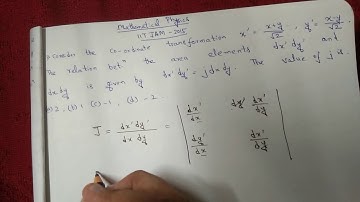 Mathematical Physics
IIT JAM - 2015
Consider the co-ordinate transformation x' = x+y/√2, y' = x-y/√2.
The relation betn the area elements dx'dy' and
dxdy is given by dx'dy' = jdxdy. The value of j is
(a) 2, (b) 1 (c) -1, (d) -2
J = dx'dy'/dx dy = | dx'/dx dx'/dy |
| dy'/dx dx'/dy |